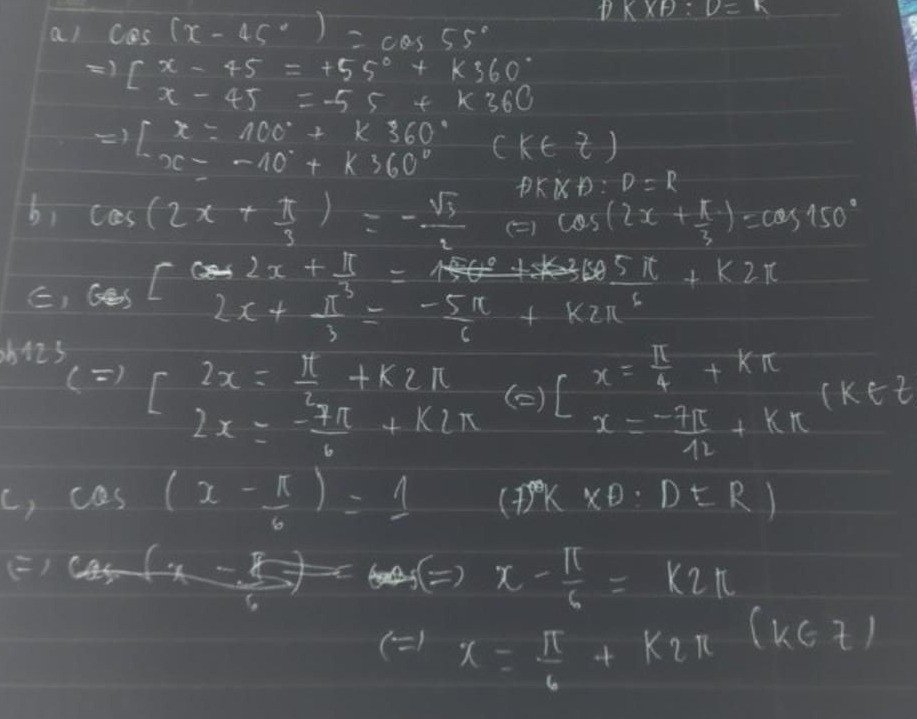 ĐKXĐ: D = R
a) cos (x - 45°) = cos 55°
=> [ x - 45 = +55° + K360°
x - 45 = -55 + K360
=> [ x = 100° + K360°
x = -10° + K360° (K ∈ Z)
ĐKXĐ: D = R
b, cos(2x + π/3) = -√3/2 (=) cos(2x + π/3) = cos150°
[ 2x + π/3 = 5π/6 + K2π
2x + π/3 = -5π/6 + K2π
(=) [ 2x = π/2 + K2π (=) [ x = π/4 + Kπ
2x = -7π/6 + K2π x = -7π/12 + Kπ (K ∈ Z
c, cos (x - π/6) = 1 (ĐK XĐ: D ∈ R)
(=) cos (x - π/6) = cos (=) x - π/6 = K2π
(=) x = π/6 + K2π (K ∈ Z)